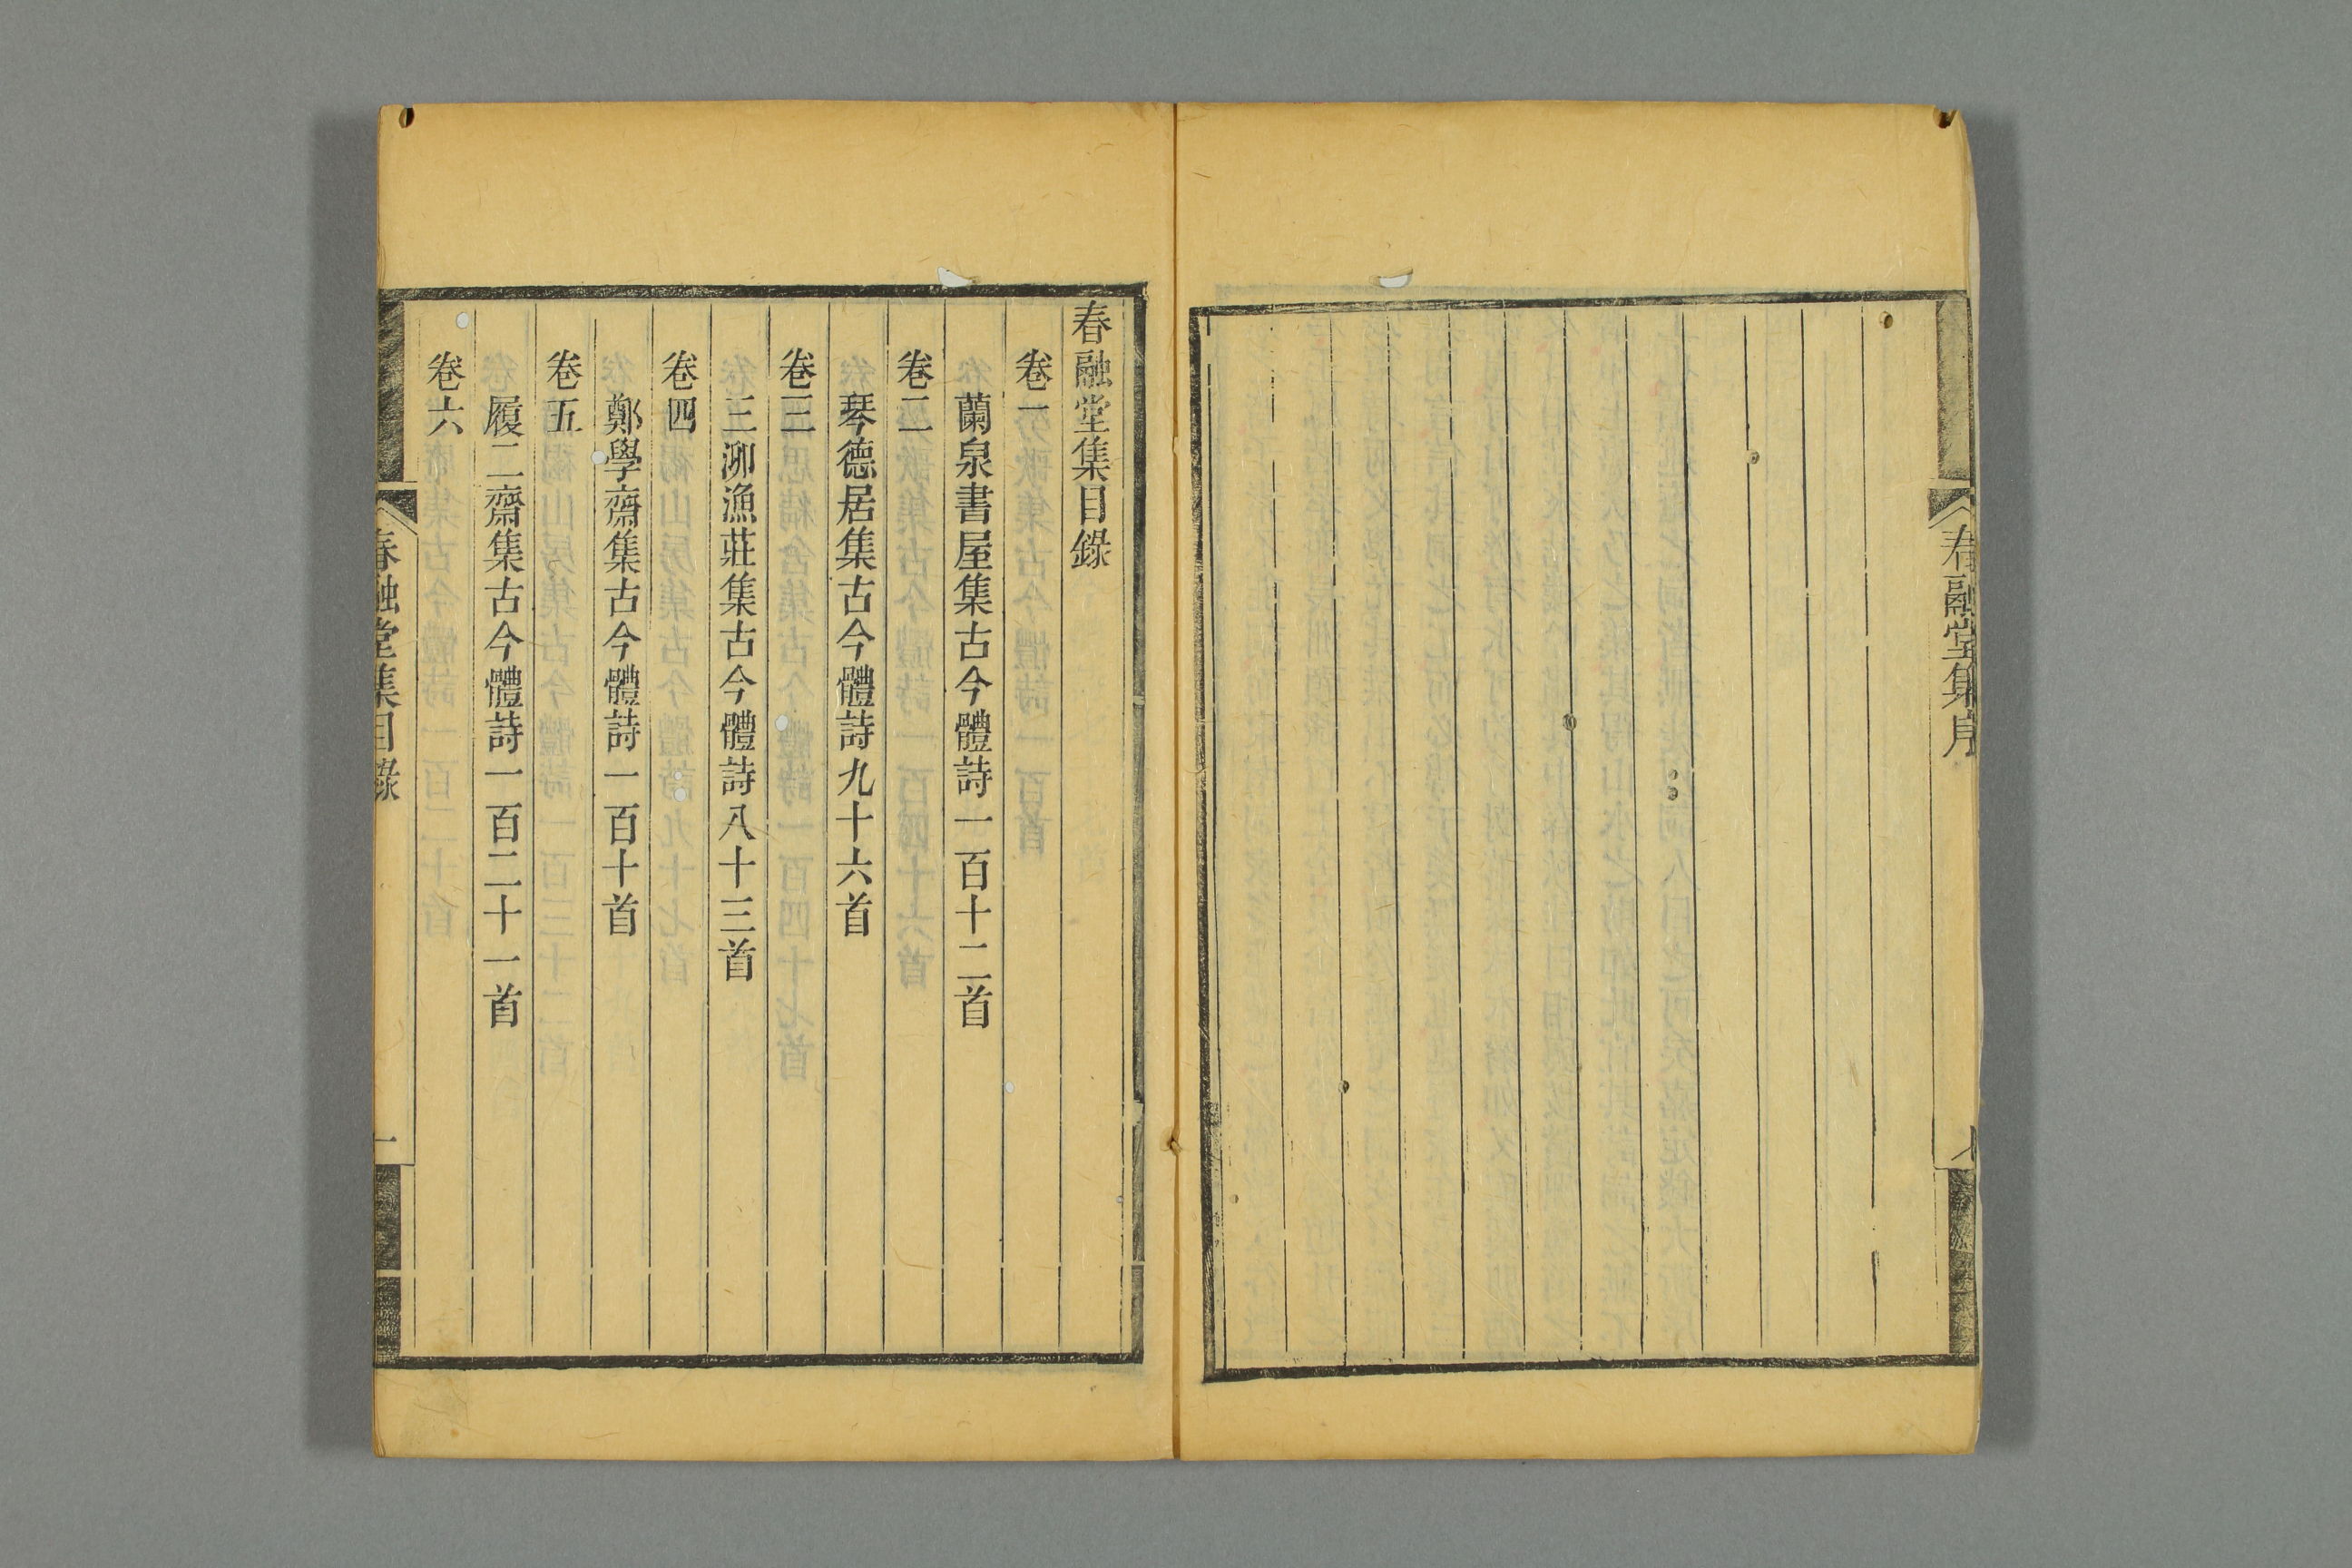 春融堂集序
春融堂集目錄
卷一
蘭泉書屋集古今體詩一百十二首
卷二
琴德居集古今體詩九十六首
卷三
三泖漁莊集古今體詩八十三首
卷四
鄭學齋集古今體詩一百十首
卷五
履二齋集古今體詩一百二十一首
卷六
春融堂集目錄
一